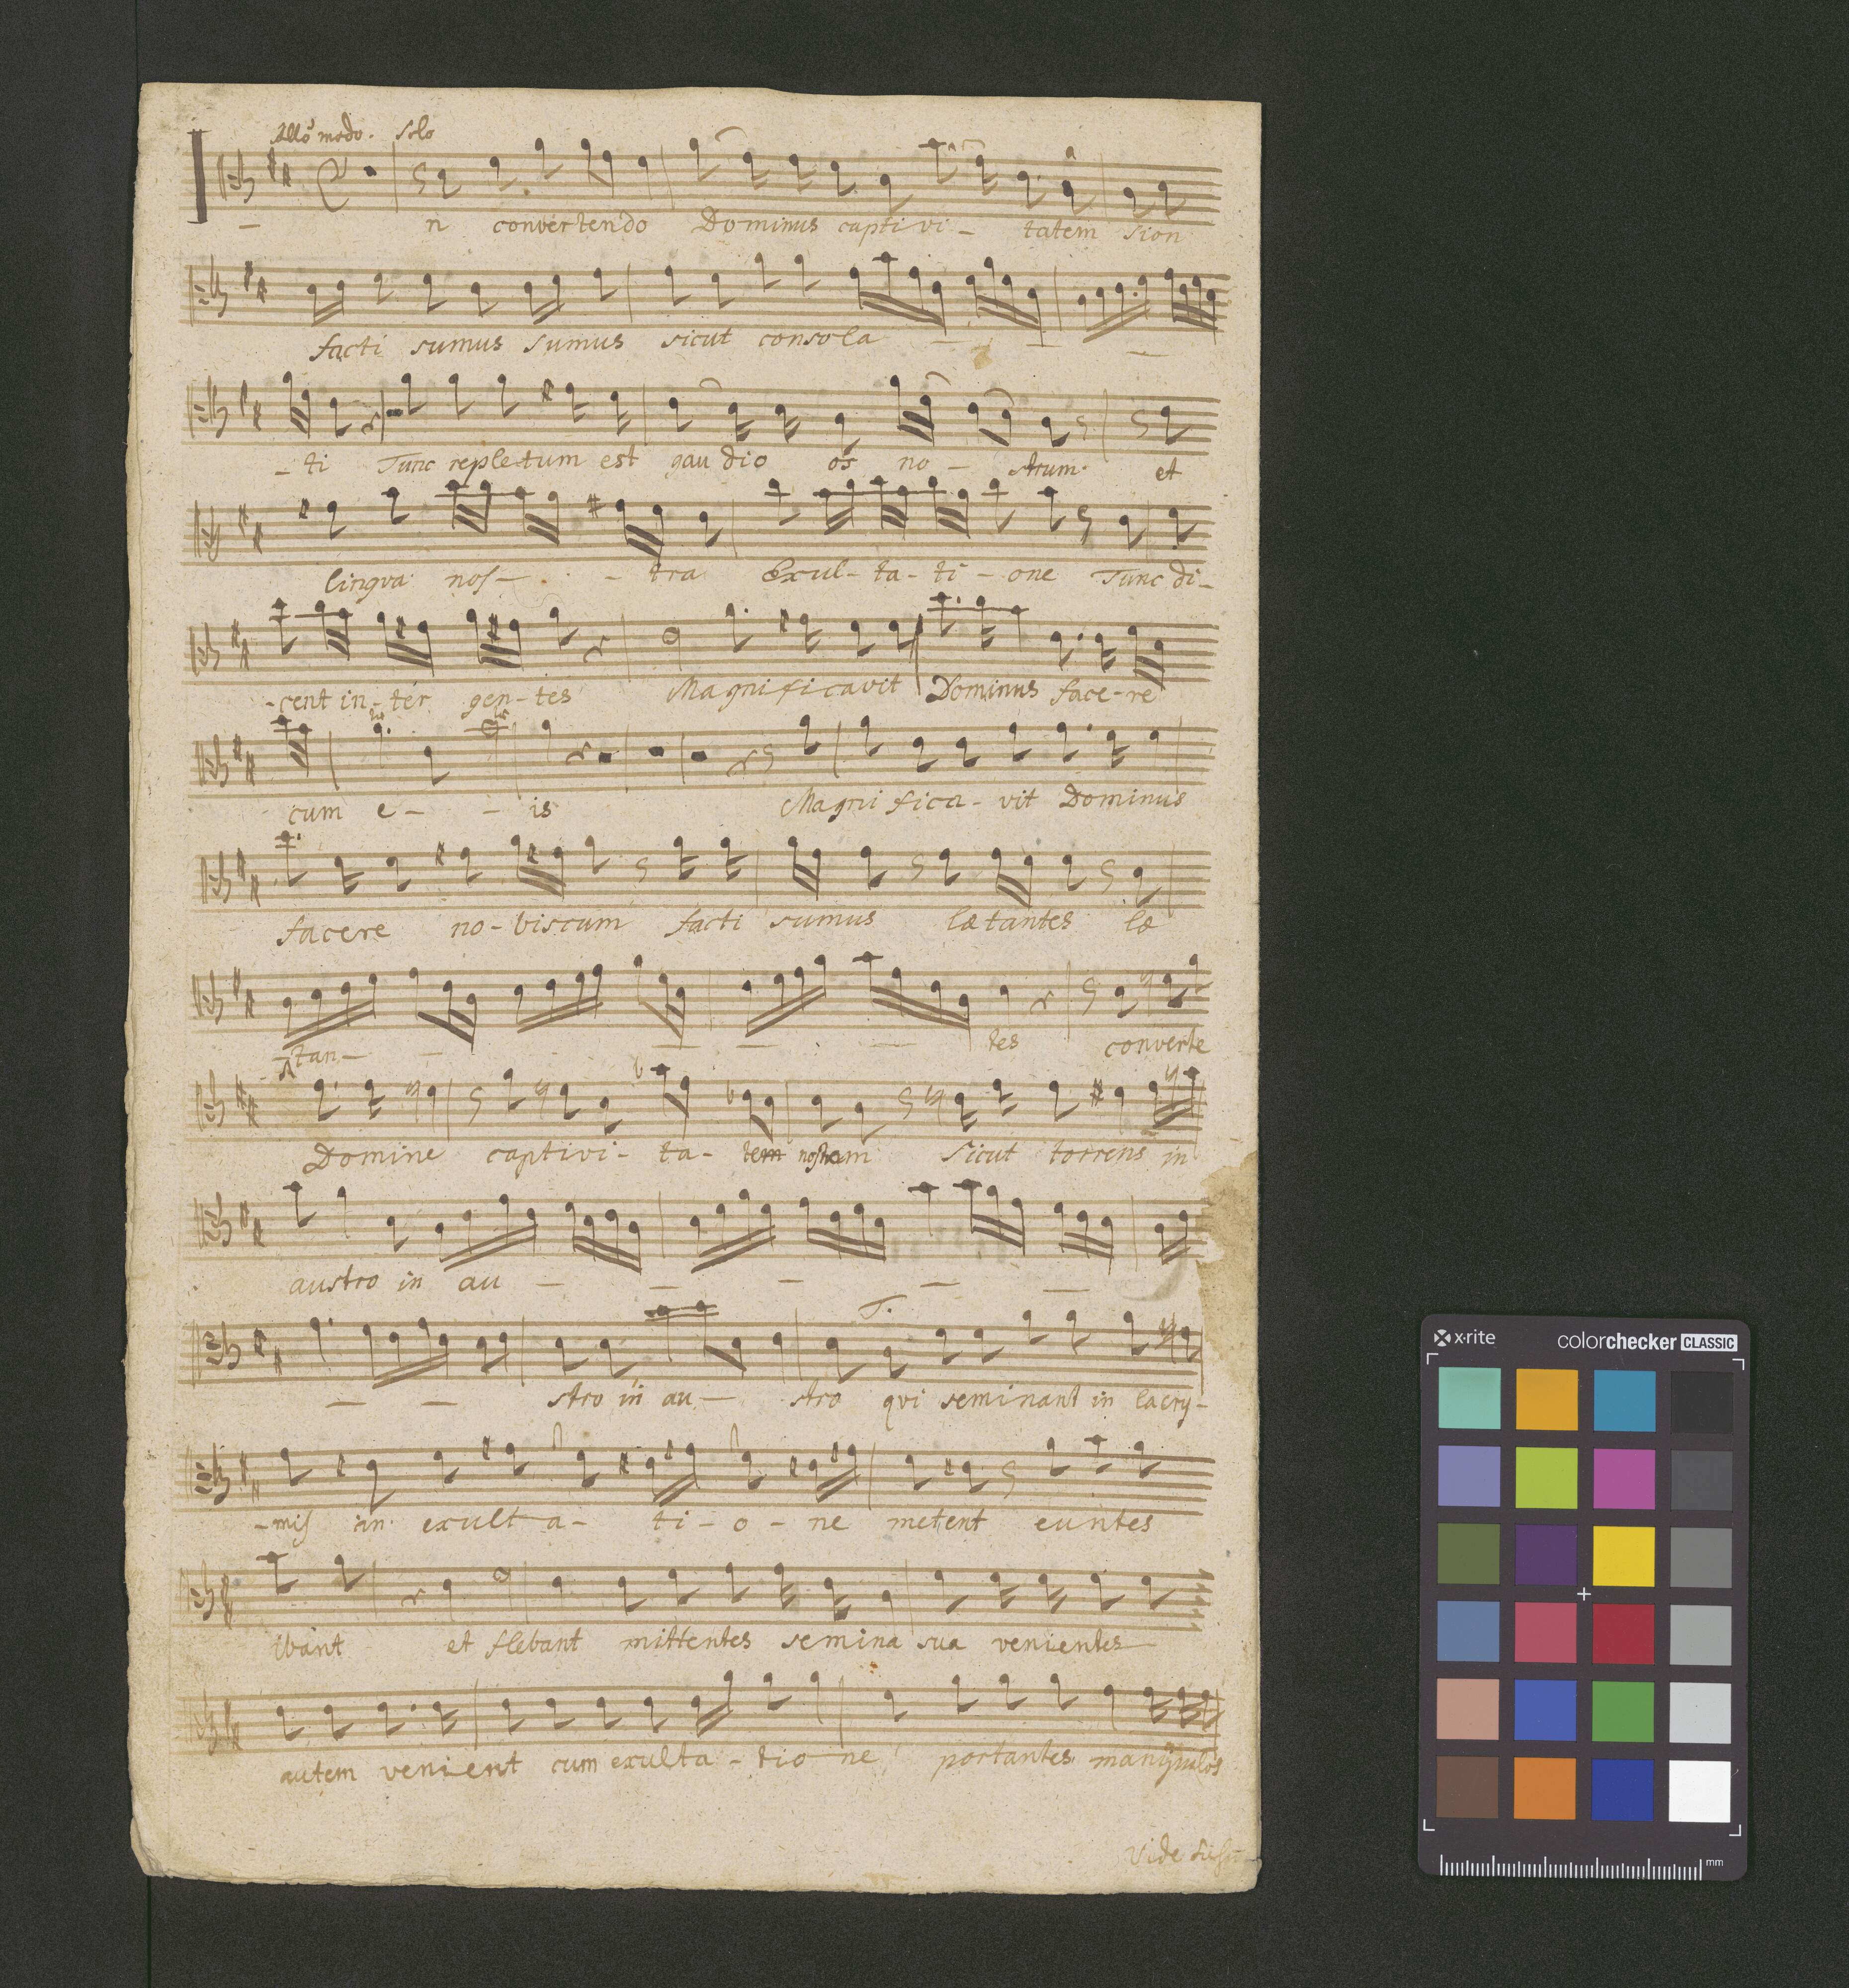 Allo modo. Solo
n convertendo Dominus captivi - tatem sion
facti sumus sumus sicut consola
- ti Tunc repletum est gaudio os no - strum. et
lingva nos - - tra Exul - ta - ti - one Tunc di -
- cent in - ter gen - tes Magnificavit Dominus face - re
cum e - - is Magnifica - vit Dominus
facere no - biscum facti sumus lætantes læ
tan - tes converte
Domine captivi - ta - tem nostram Sicut torrens in
austro in au
stro in au - stro qvi seminant in lacry -
- mis in exulta - ti - o - ne metent euntes
ibant et flebant mittentes semina sua venientes
autem venient cum exulta - tio ne portantes manipulos
Vide
x·rite colorchecker CLASSIC
mm